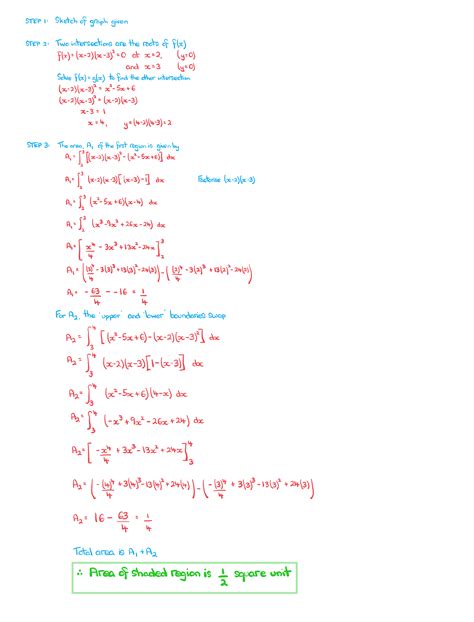 STEP 1: Sketch of graph given
STEP 2: Two intersections are the roots of f(x)
f(x)=(x-2)(x-3)²=0 at x=2, (y=0)
and x=3 (y=0)
Solve f(x)=g(x) to find the other intersection
(x-2)(x-3)² = x²-5x+6
(x-2)(x-3)² = (x-2)(x-3)
x-3=1
x=4, y=(4-2)(4-3)=2
STEP 3: The area, A₁ of the first region is given by
A₁=∫₂³ [(x-2)(x-3)²-(x²-5x+6)] dx
A₁=∫₂³ (x-2)(x-3)[(x-3)-1] dx Factorise (x-2)(x-3)
A₁=∫₂³ (x²-5x+6)(x-4) dx
A₁=∫₂³ (x³-9x²+26x-24) dx
A₁=[x⁴/4 - 3x³+13x²-24x]₂³
A₁=((3)⁴/4 -3(3)³+13(3)²-24(3))-((2)⁴/4 -3(2)³+13(2)²-24(2))
A₁= -63/4 - -16 = 1/4
For A₂, the 'upper' and 'lower' boundaries swap
A₂=∫₃⁴ [(x²-5x+6)-(x-2)(x-3)²] dx
A₂=∫₃⁴ (x-2)(x-3)[1-(x-3)] dx
A₂=∫₃⁴ (x²-5x+6)(4-x) dx
A₂=∫₃⁴ (-x³+9x²-26x+24) dx
A₂=[-x⁴/4 + 3x³-13x²+24x]₃⁴
A₂=(-(4)⁴/4 + 3(4)³-13(4)²+24(4))-(-(3)⁴/4 + 3(3)³-13(3)²+24(3))
A₂= 16 - 63/4 = 1/4
Total area is A₁+A₂
∴ Area of shaded region is 1/2 square unit